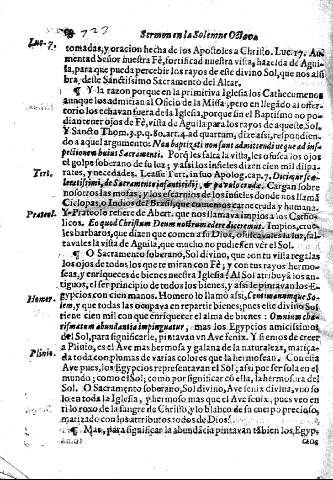 723 Sermon en la Solemne Octava
Luc. 7.
tomadas, y oracion hecha de los Apostoles a Christo. Luc. 17. Aumentad
Señor nuestra Fè, fortificad nuestra vista, hazelda de Agui-
la, para que pueda percebir los rayos de este divino Sol, que nos alũ
bra, deste Santissimo Sacramento del Altar.
¶ Y la razon porque en la primitiva Iglesia los Cathecumenos
aunque los admitian al Oficio de la Missa, pero en llegado al offer-
torio los echavan fuera de la Iglesia, porque sin el Baptismo no po-
dian tener ojos de Fè, vista de Aguila para los rayos de aqueste Sol.
Y Sancto Thom. 3. p. q. 80. art. 4. ad quartum, dize assi, respondien-
do a aquel argumento: Non baptizati non sunt admittendi neque ad ins-
pectionem huius Sacramenti. Porq les falta la vista, les ofusca los ojos
el golpe soberano de su luz; y assi los infieles dizen cien mil dispa-
Ter.
rates, y necedades. Leasse Tert. in suo Apolog. cap. 7. Dicimur sce-
leratissimi, de Sacramento infanticidij, & pabulo crudo. Cargan sobre
nosotros las mofas, y los escarnios de los infieles donde nos llamã
Ciclopas, o Indios del Brasil, que comemos carne cruda y humana.
Prateol.
Y Prateolo refiere de Abert. que nos llamava impios a los Catho-
licos. Eo quod Christum Deum nostrum edere dicemur. Impios, crue-
les barbaros, que dizen que comen a su Dios, ofuscavales su luz, fal-
tavales la vista de Aguila, que mucho no pudiessen vèr el Sol.
¶ O Sacramento soberano, Sol divino, que con tu vista regalas
los ojos de todos los que te miran con Fè, y con tus rayos hermo-
seas, y enriqueces de bienes nuestra Iglesia! Al Sol atribuyã los an-
tiguos, el ser principio de todos los bienes, y assi le pintavan los E-
gypcios con cien manos. Homero lo llamo assi,
Homer.
y que todas las ocupava en repartir bienes; pues este divino Sol
tiene cien mil con que enriquecer el alma de bienes: Omnium cha-
rismatum abundantia impinguatur; mas los Egypcios amicissimos
del Sol, para significarle, pintavan vn Ave fenix. Y si emos de creer
Plinio.
a Plinio, es el Ave mas hermosa y galana de la naturaleza, matiça-
da toda con plumas de varias colores que la hermosean. Con esta
Ave pues, los Egypcios representavan el Sol; assi por ser sola en el
mundo; como el Sol; como por significar cõ ella, la hermosura del
Sol. O Sacramento soberano, Sol divino, Ave fenix divina, vno so-
lo en toda la Iglesia, y hermoso mas que el Ave fenix, pues veo en
ti lo roxo de la sangre de Christo, y lo blanco de su cuerpo precioso,
matizado con los atributos todos de Dios.
¶ Mas, para significar la abundãcia pintavan tãbien los, Egyp-
cios